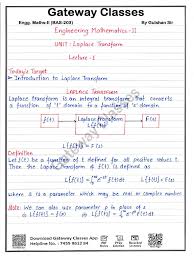 Gateway Classes
Engg. Maths-II (BAS-203)
By Gulshan Sir
Engineering Mathematics-II
UNIT: Laplace Transform
Lecture-1
Today's Target
Introduction to Laplace Transform
LAPLACE TRANSFORM
Laplace Transform is an integral transform that converts
a function of 't' domain to a function of 's' domain.
Definition
Let f(t) be a function of t defined for all positive values t.
Then the Laplace Transform of f(t) is defined as
where s is a parameter which may be real or complex number
Note: We can also use parameter p in place of s
Download Gateway Classes App
Helpline No. : 7455 9612 84